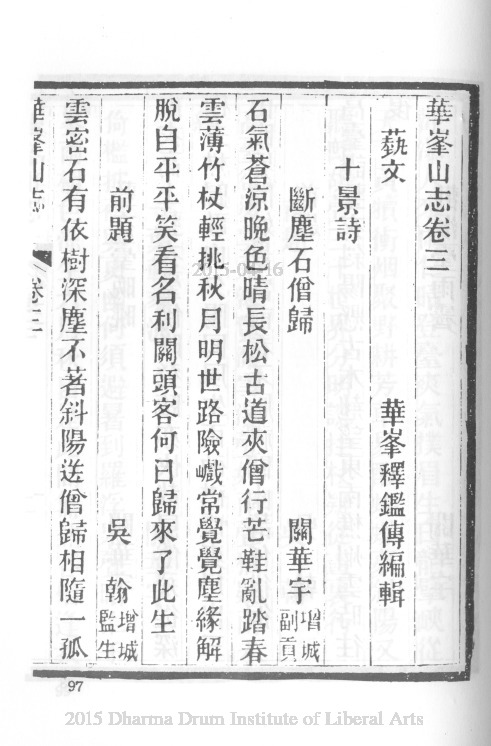 華峯山志卷三
藝文　華峯釋鑑傳編輯
十景詩
斷塵石僧歸　關華宇 增城副貢
石氣蒼涼晚色晴長松古道夾僧行芒鞋亂踏春
雲薄竹杖輕挑秋月明世路險巇常覺覺塵緣解
脫自平平笑看名利關頭客何日歸來了此生
前題　吳翰 增城監生
雲密石有依樹深塵不著斜陽送僧歸相隨一孤
華峯山志 卷三
97
2015-04-16
2015 Dharma Drum Institute of Liberal Arts